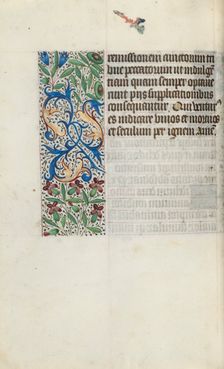 remissionem cunctorum tri
bue peccatorum ut indulgen
tiam quam semper optave
runt piis supplicationibus
consequantur. Qui ventur
es iudicare vivos et mortuos
et seculum per ignem. Amen